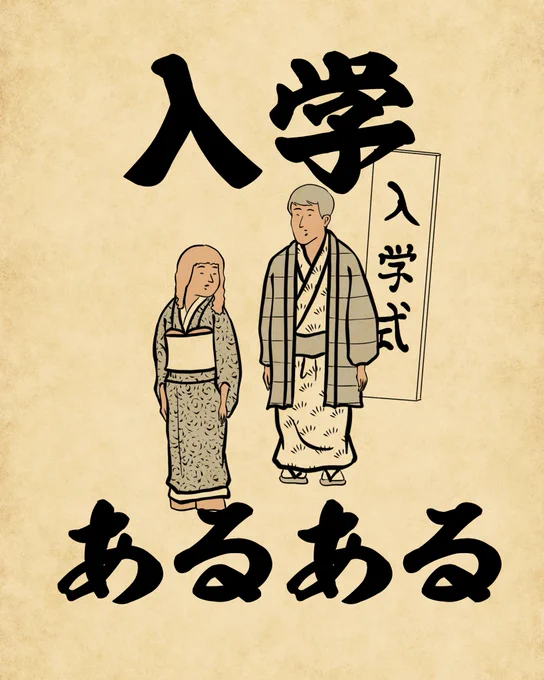 入学
入学式
あるある